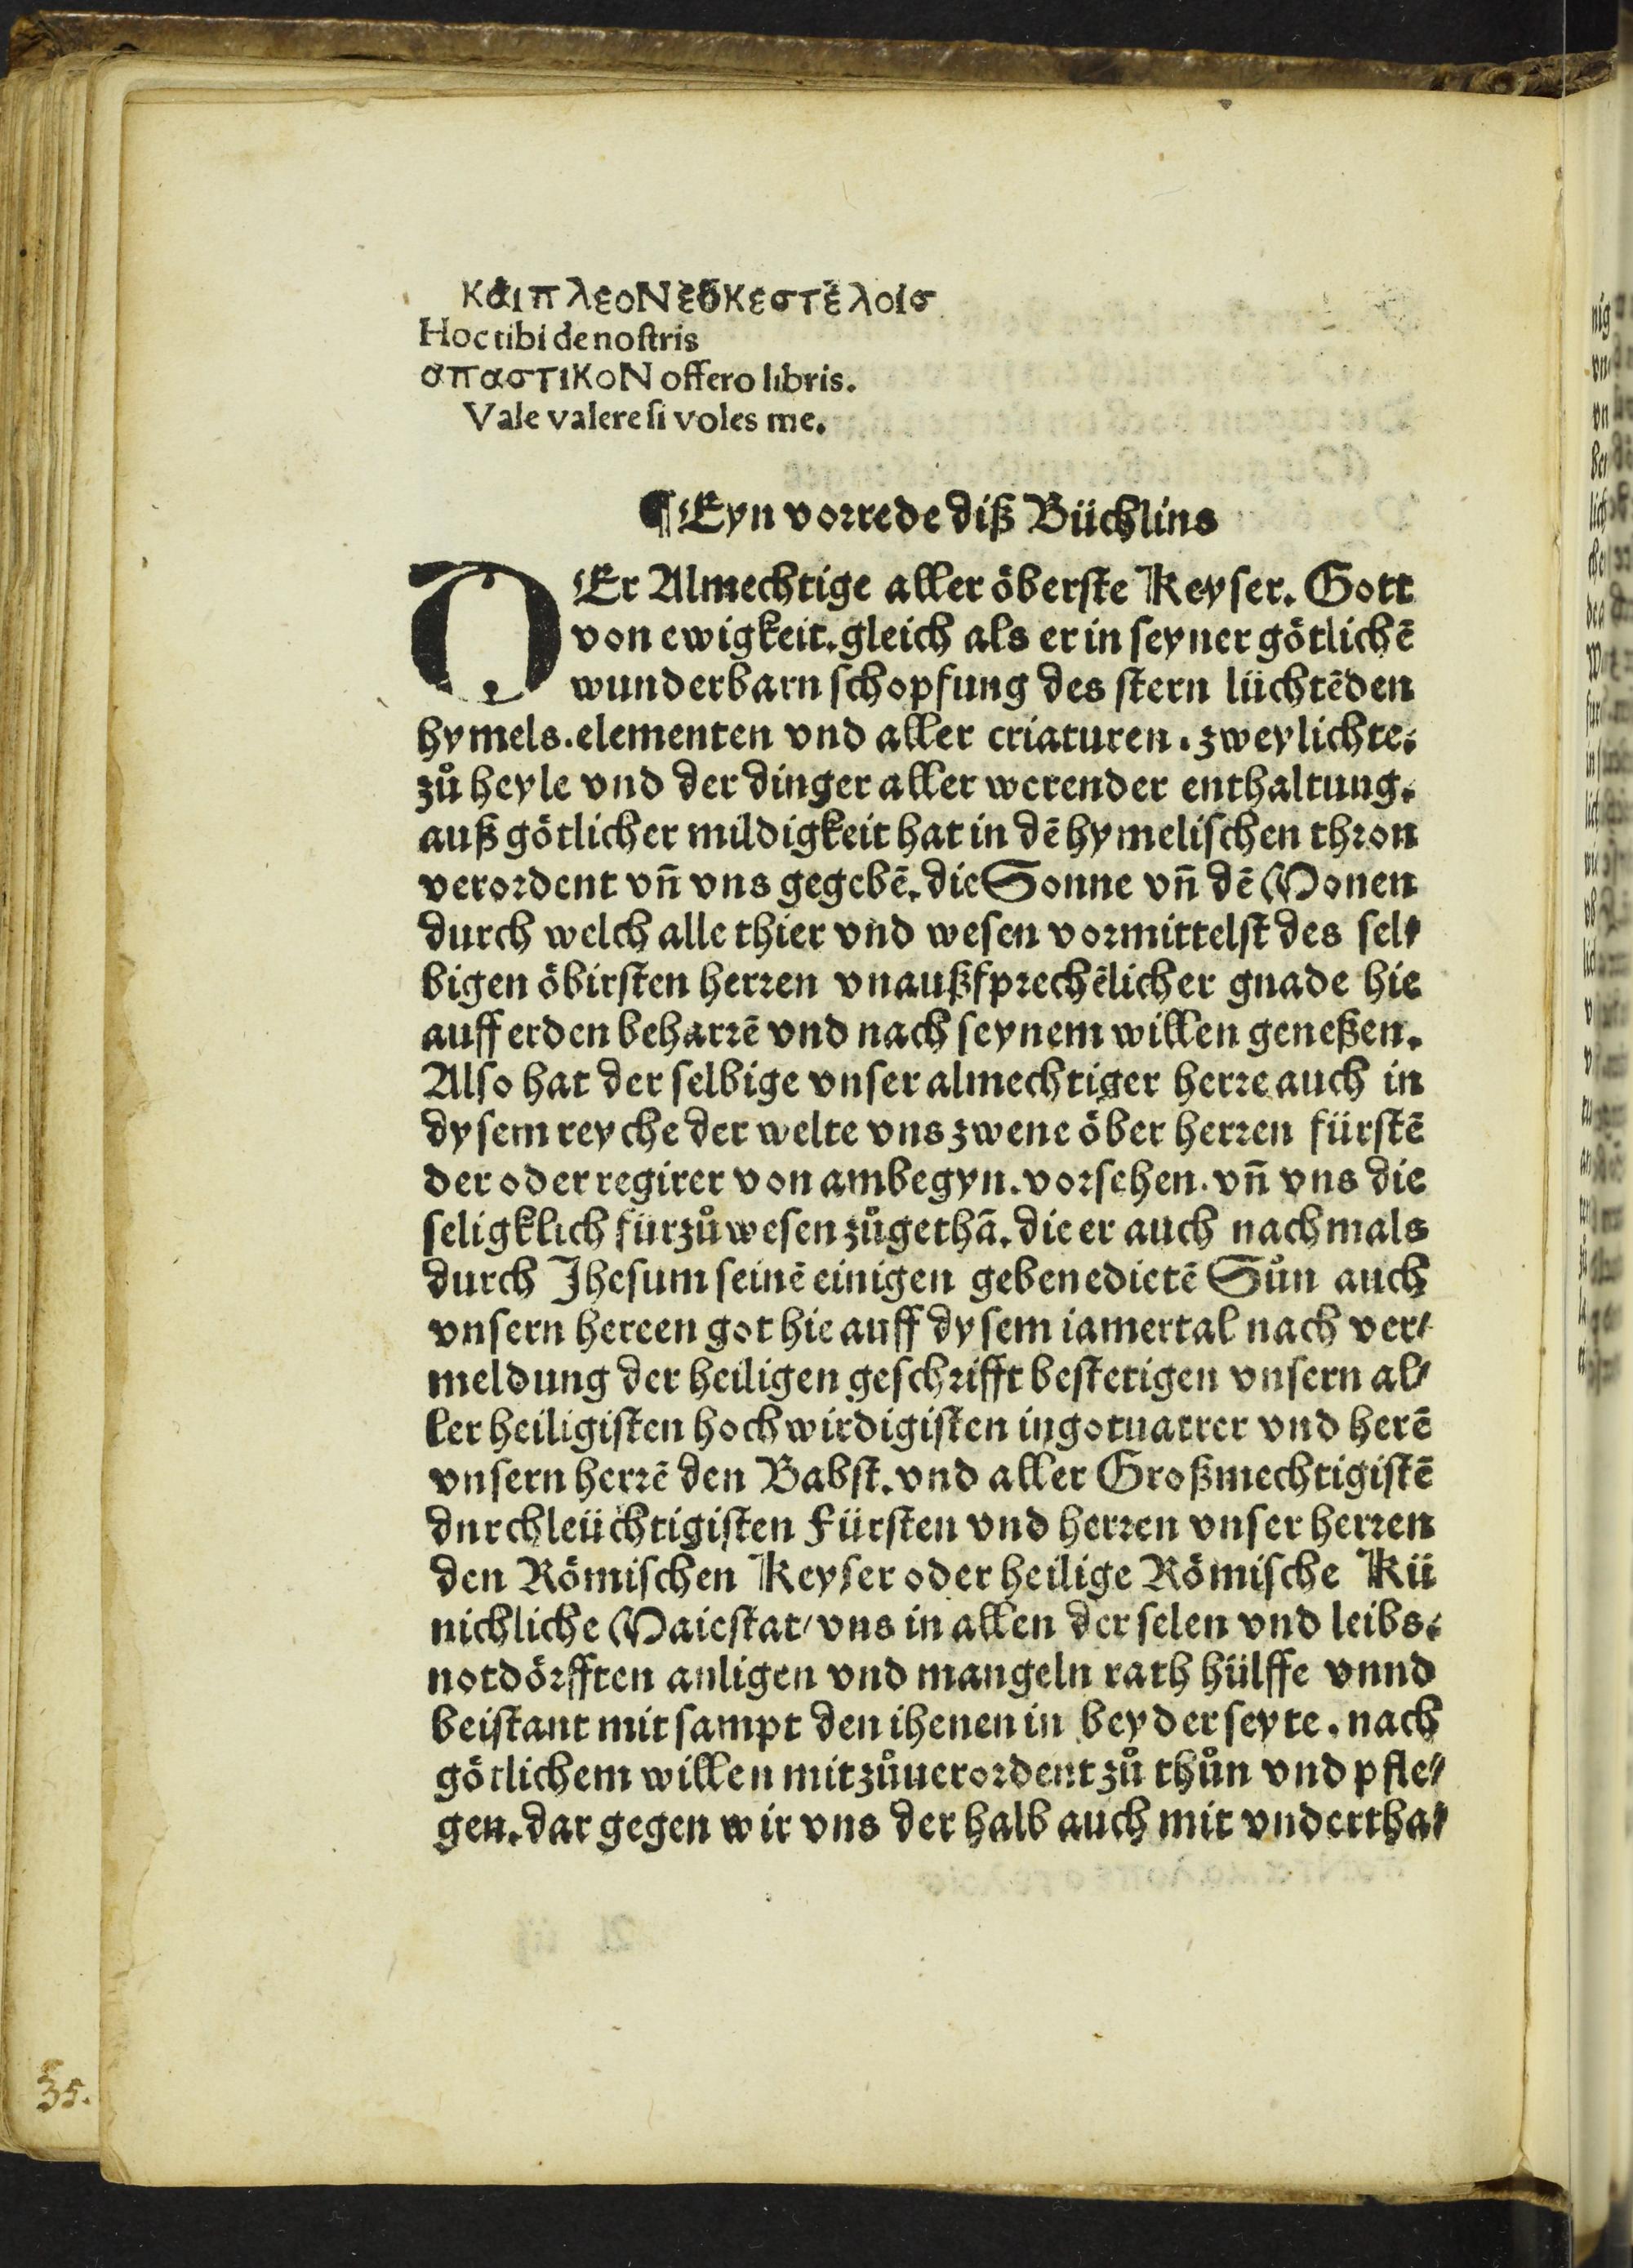 καιπλεοΝεδκεστέλοισ
Hoc tibi de nostris
απαστικοΝ offero libris.
Vale valere si voles me.
¶ Eyn vorrede diß Büchlins
DEr Almechtige aller öberste Keyser. Gott
von ewigkeit. gleich als er in seyner götlichē
wunderbarn schopfung des stern lüchtēden
hymels. elementen vnd aller criaturen. zwey lichte.
zů heyle vnd der dinger aller werender enthaltung.
auß götlicher mildigkeit hat in dē hymelischen thron
verordent vn̄ vns gegebē. die Sonne vn̄ dē Monen
durch welch alle thier vnd wesen vormittelst des sel⸗
bigen öbirsten herren vnaußsprechēlicher gnade hie
auff erden beharrē vnd nach seynem willen geneßen.
Also hat der selbige vnser almechtiger herre auch in
dysem reyche der welte vns zwene öber herren fürstē
der oder regirer von ambegyn. vorsehen. vn̄ vns die
seligklich fürzůwesen zůgethā. die er auch nachmals
durch Jhesum seinē einigen gebenedietē Sůn auch
vnsern hereen got hie auff dysem iamertal nach ver⸗
meldung der heiligen geschrifft bestetigen vnsern al⸗
ler heiligisten hochwirdigisten in gotuatrer vnd herē
vnsern herrē den Babst. vnd aller Großmechtigistē
dnrchleüchtigisten Fürsten vnd herren vnser herren
den Römischen Keyser oder heilige Römische Kü
nichliche Maiestat/ vns in allen der selen vnd leibs.
notdörfften anligen vnd mangeln rath hülffe vnnd
beistant mit sampt den ihenen in beyder seyte. nach
götlichem willen mitzůuerordent zů thůn vnd pfle⸗
gen. dar gegen wir vns der halb auch mit vndertha⸗
35.